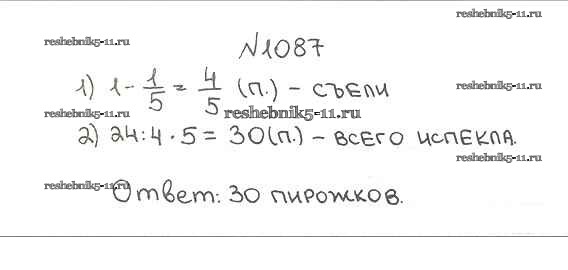 reshebnik5-11.ru
reshebnik5-11.ru
N1087
1) 1 - 1/5 = 4/5 (п.) - съели
reshebnik5-11.ru
reshebnik5-11.ru
reshebnik5-11.ru
2) 24:4·5=30(п.) - всего испекла.
reshebnik5-11.ru
reshebnik5-11.ru
Ответ: 30 пирожков.